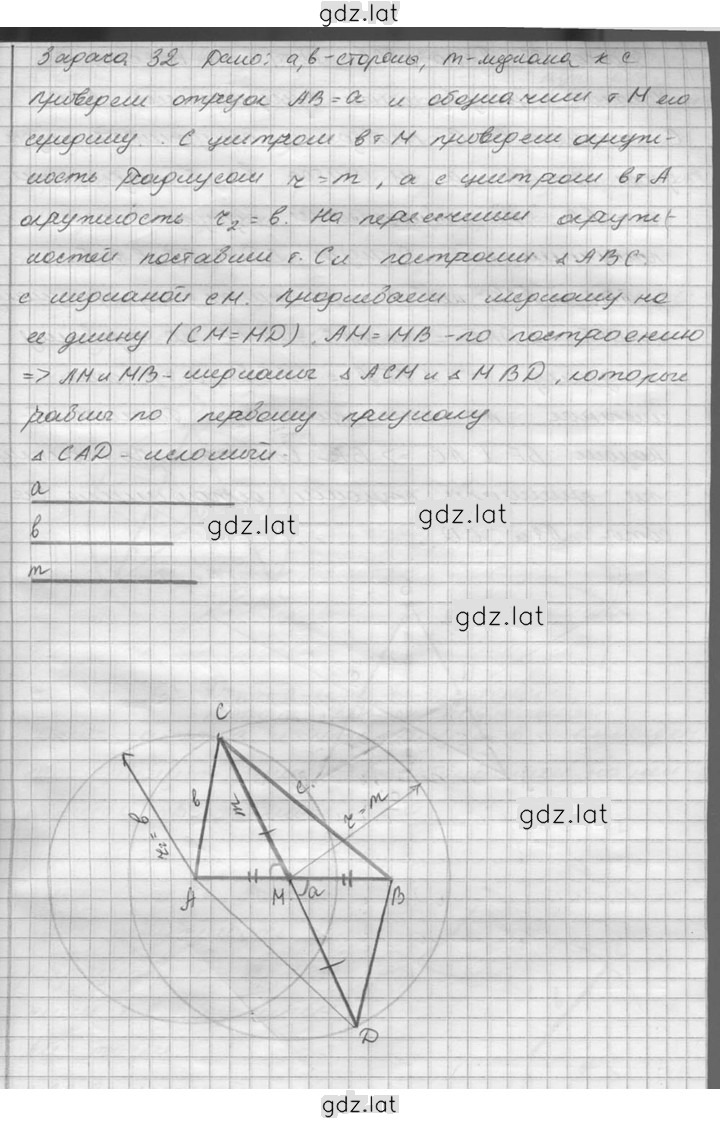 gdz.lat
Задача 32 Дано: а, в - стороны, m - медиана к с
Проведем отрезок АВ = а и обозначим т М его
середину. С центром в т М проведем окруж-
ность радиусом r = m, а с центром в т А
окружность r₂ = в. На пересечении окруж-
ностей поставим т. С и построим △ АВС.
с медианой СМ. Продлеваем медиану на
ее длину (СМ = МD). АМ = МВ - по построению
=> АМ и МВ - медианы △ АСМ и △ МВD, которые
равны по первому признаку
△ САD - искомый.
а
в
m
gdz.lat
gdz.lat
gdz.lat
C
в
m
c
r = m
gdz.lat
А
М
а
В
D
gdz.lat